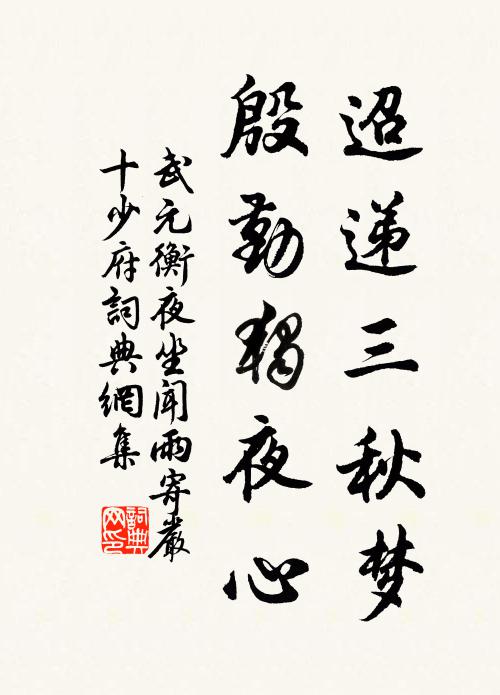 迢递三秋梦
殷勤独夜心
武元衡夜坐闻雨寄嚴
十少府詞典網集
詞典
网印